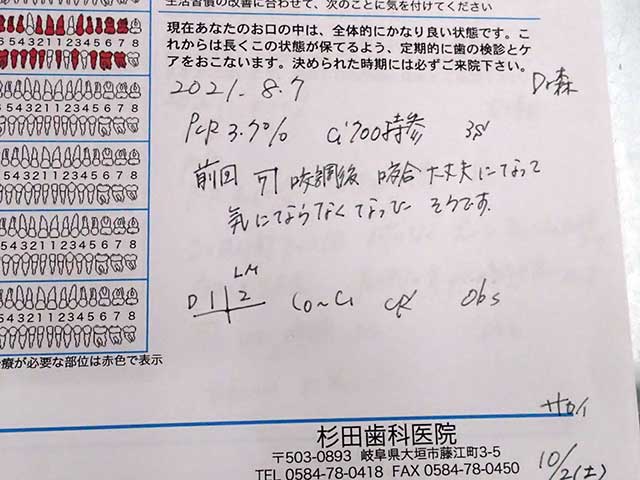 生活習慣の改善に合わせて、次のことに気を付けてください
現在あなたのお口の中は、全体的にかなり良い状態です。こ
れからは長くこの状態が保てるよう、定期的に歯の検診とケ
アをおこないます。決められた時期には必ずご来院下さい。
2021.8.7
Dr森
PCR 3.7% Ci700持参
前回 咬調後 咬合大丈夫になって
気にならなくなった そうです。
LM
D 1 2 C0~C1 Obs
5 4 3 2 1 1 2 3 4 5 6 7 8
6 5 4 3 2 1 1 2 3 4 5 6 7 8
5 4 3 2 1 1 2 3 4 5 6 7 8
5 4 3 2 1 1 2 3 4 5 6 7 8
5 4 3 2 1 1 2 3 4 5 6 7 8
療が必要な部位は赤色で表示
サカイ
杉田歯科医院
〒503-0893 岐阜県大垣市藤江町3-5
TEL 0584-78-0418 FAX 0584-78-0450
10/2(土)